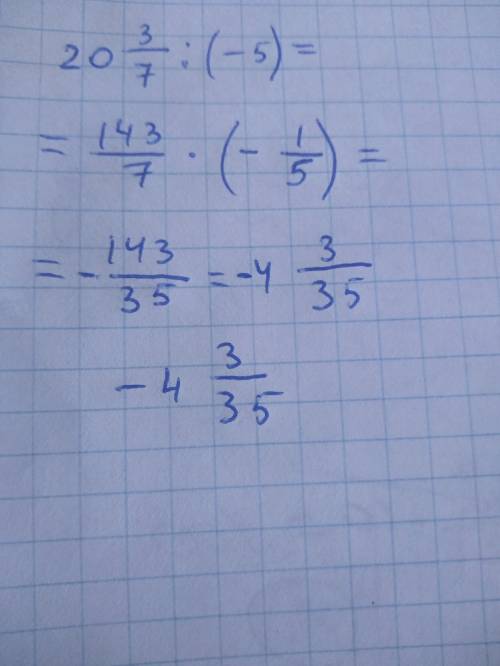 20 3/7 : (-5) =
= 143/7 · (- 1/5) =
= - 143/35 = -4 3/35
- 4 3/35